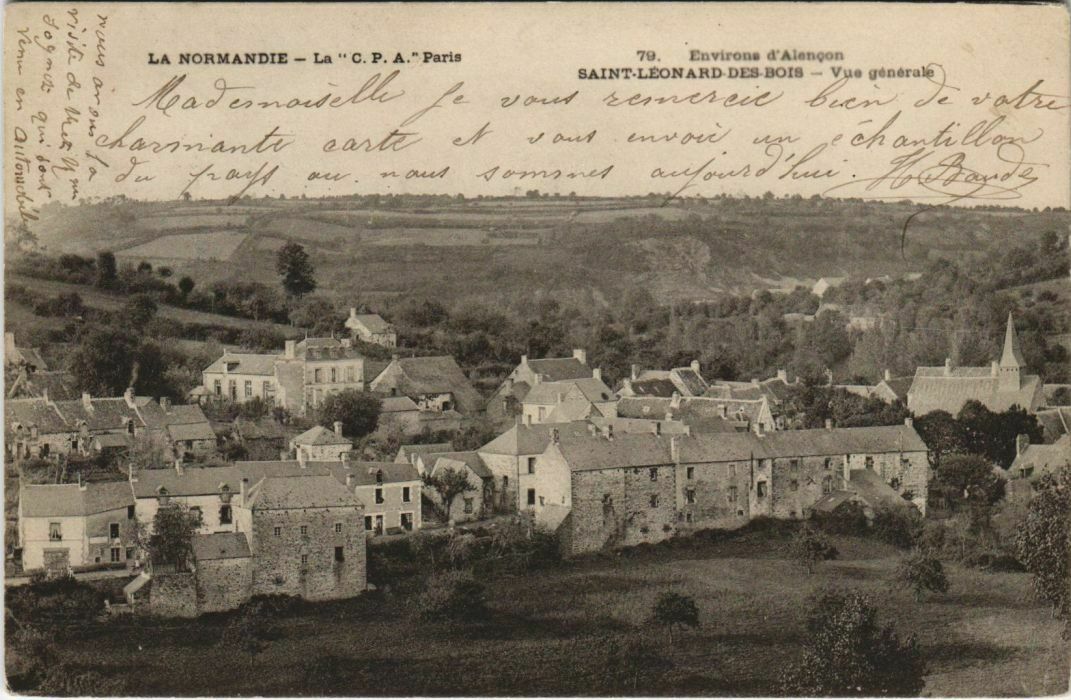 LA NORMANDIE – La "C. P. A." Paris
79. Environs d'Alençon
SAINT-LÉONARD-DES-BOIS – Vue générale
Mademoiselle Je vous remercie bien de votre
charmante carte et vous envoie un échantillon
du pays ou nous sommes aujourd'hui. H Baudes
nous avons la
visite de
qui sont
venu en automobile